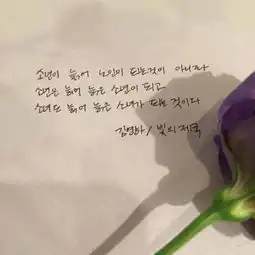 소년이 늙어 노인이 되는것이 아니라
소년은 늙어 늙은 소년이 되고
소녀는 늙어 늙은 소녀가 되는 것이다
김영하 / 빛의 제국